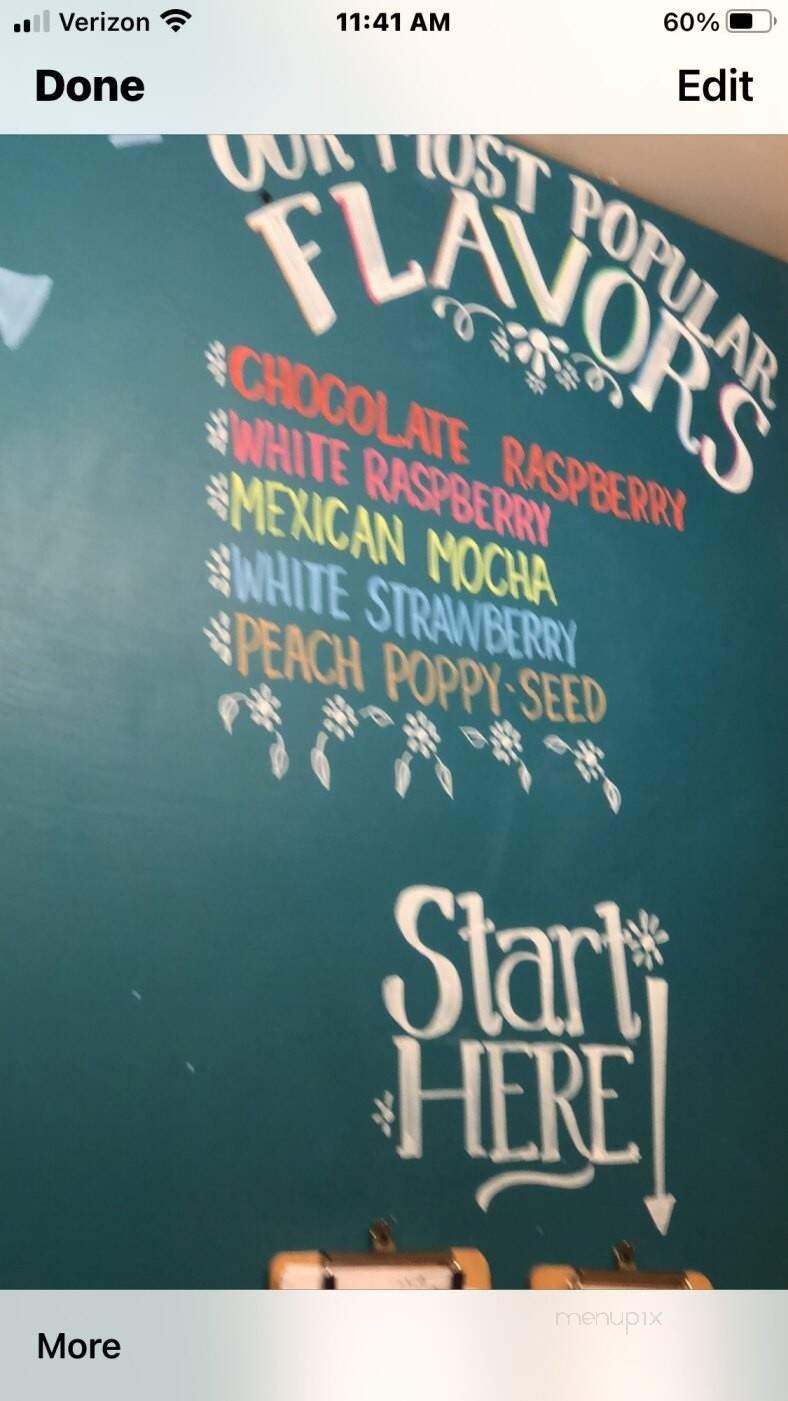 Verizon 11:41 AM 60%
Done Edit
OUR MOST POPULAR
FLAVORS
CHOCOLATE RASPBERRY
WHITE RASPBERRY
MEXICAN MOCHA
WHITE STRAWBERRY
PEACH POPPY-SEED
Start
HERE
menupix
More